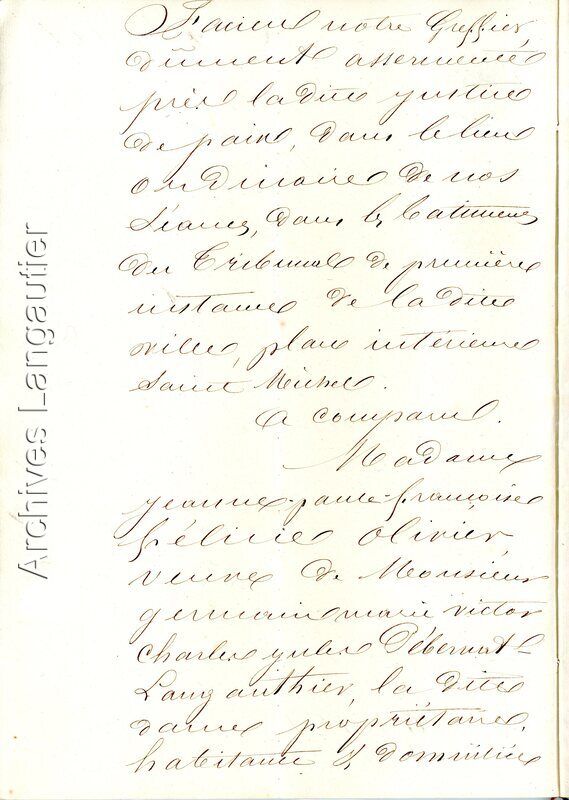 notre Greffier,
dûment assermenté
près ladite justice
de paix, dans le lieu
ordinaire de nos
séances, dans les bâtiments
du Tribunal de première
instance de la dite
ville, place intérieure
Saint Michel.
a comparu.
Madame
jeanne-paule-françoise
félicie Olivier,
veuve de Monsieur
germain marie victor
charles jules
Langauthier, la dite
dame propriétaire,
habitante & domiciliée
Archives Langautier